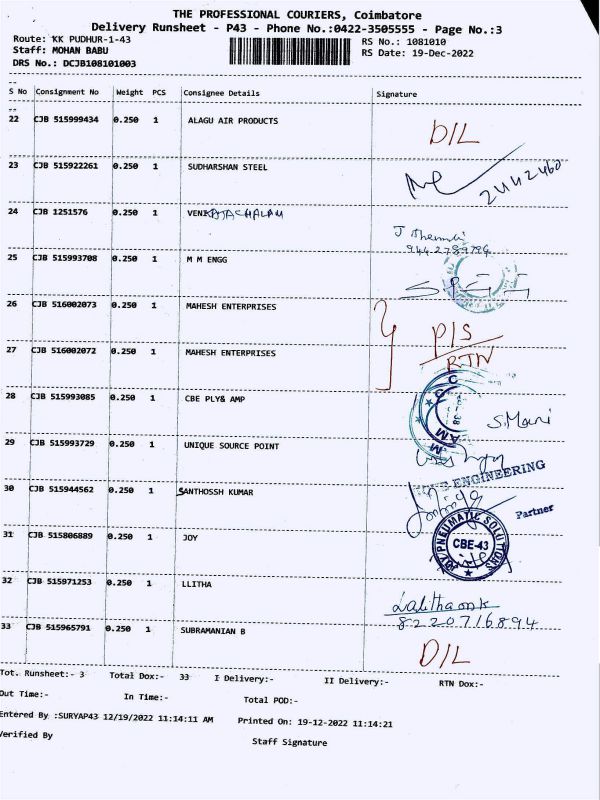 THE PROFESSIONAL COURIERS, Coimbatore
Delivery Runsheet - P43 - Phone No.:0422-3505555 - Page No.:3
Route: KK PUDHUR-1-43 RS No.: 1081010
Staff: MOHAN BABU RS Date: 19-Dec-2022
DRS No.: DCJB108101003
S No Consignment No Weight PCS Consignee Details Signature
22 CJB 515999434 0.250 1 ALAGU AIR PRODUCTS D/L
23 CJB 515922261 0.250 1 SUDHARSHAN STEEL 2442460
24 CJB 1251576 0.250 1 VENKATACHALAM
9442789794
25 CJB 515993708 0.250 1 M M ENGG
26 CJB 516002073 0.250 1 MAHESH ENTERPRISES P/S
27 CJB 516002072 0.250 1 MAHESH ENTERPRISES RTN
28 CJB 515993085 0.250 1 CBE PLY& AMP S.Mani
29 CJB 515993729 0.250 1 UNIQUE SOURCE POINT
ENGINEERING
30 CJB 515944562 0.250 1 SANTHOSSH KUMAR
Partner
31 CJB 515806889 0.250 1 JOY
JOY PNEUMATIC SOLUTIONS
CBE-43
32 CJB 515971253 0.250 1 LLITHA
8220716894
33 CJB 515965791 0.250 1 SUBRAMANIAN B D/L
Tot. Runsheet:- 3 Total Dox:- 33 I Delivery:- II Delivery:- RTN Dox:-
Out Time:- In Time:- Total POD:-
Entered By :SURYAP43 12/19/2022 11:14:11 AM Printed On: 19-12-2022 11:14:21
Verified By Staff Signature